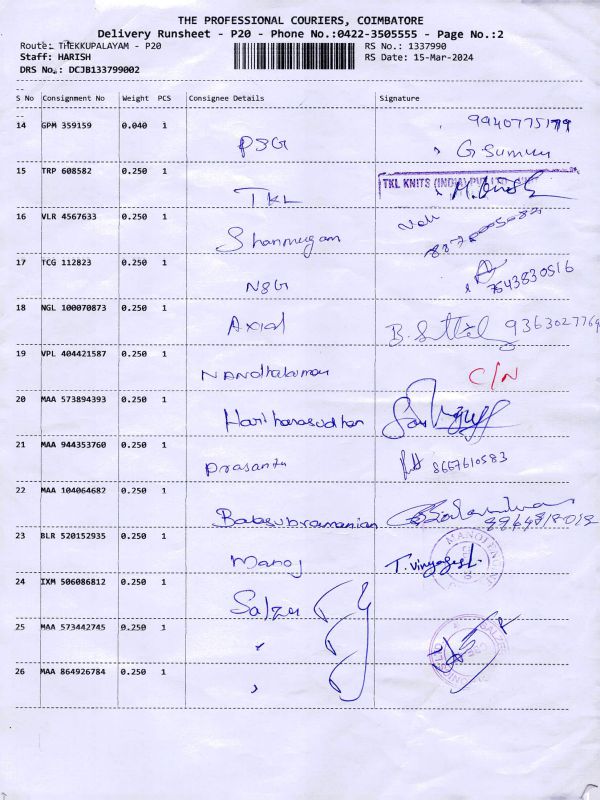 THE PROFESSIONAL COURIERS, COIMBATORE
Delivery Runsheet - P20 - Phone No.:0422-3505555 - Page No.:2
Route: THEKKUPALAYAM - P20 RS No.: 1337990
Staff: HARISH RS Date: 15-Mar-2024
DRS No.: DCJB133799002
S No Consignment No Weight PCS Consignee Details Signature
14 GPM 359159 0.040 1 PSG 9940775179
G Sumum
15 TRP 608582 0.250 1 TKL TKL KNITS (INDIA) PVT LTD
16 VLR 4567633 0.250 1 Shanmugam
17 TCG 112823 0.250 1 NSG 7543830516
18 NGL 100070873 0.250 1 Axial B. 9363027769
19 VPL 404421587 0.250 1 Nandhakumar C/N
20 MAA 573894393 0.250 1 Hariharasudhan
21 MAA 944353760 0.250 1 Prasanta 8667610583
22 MAA 104064682 0.250 1 Balasubramanian
23 BLR 520152935 0.250 1 Manoj T. Vinyagesh MANOJ
24 IXM 506086812 0.250 1 Salzer
25 MAA 573442745 0.250 1 "
26 MAA 864926784 0.250 1 "